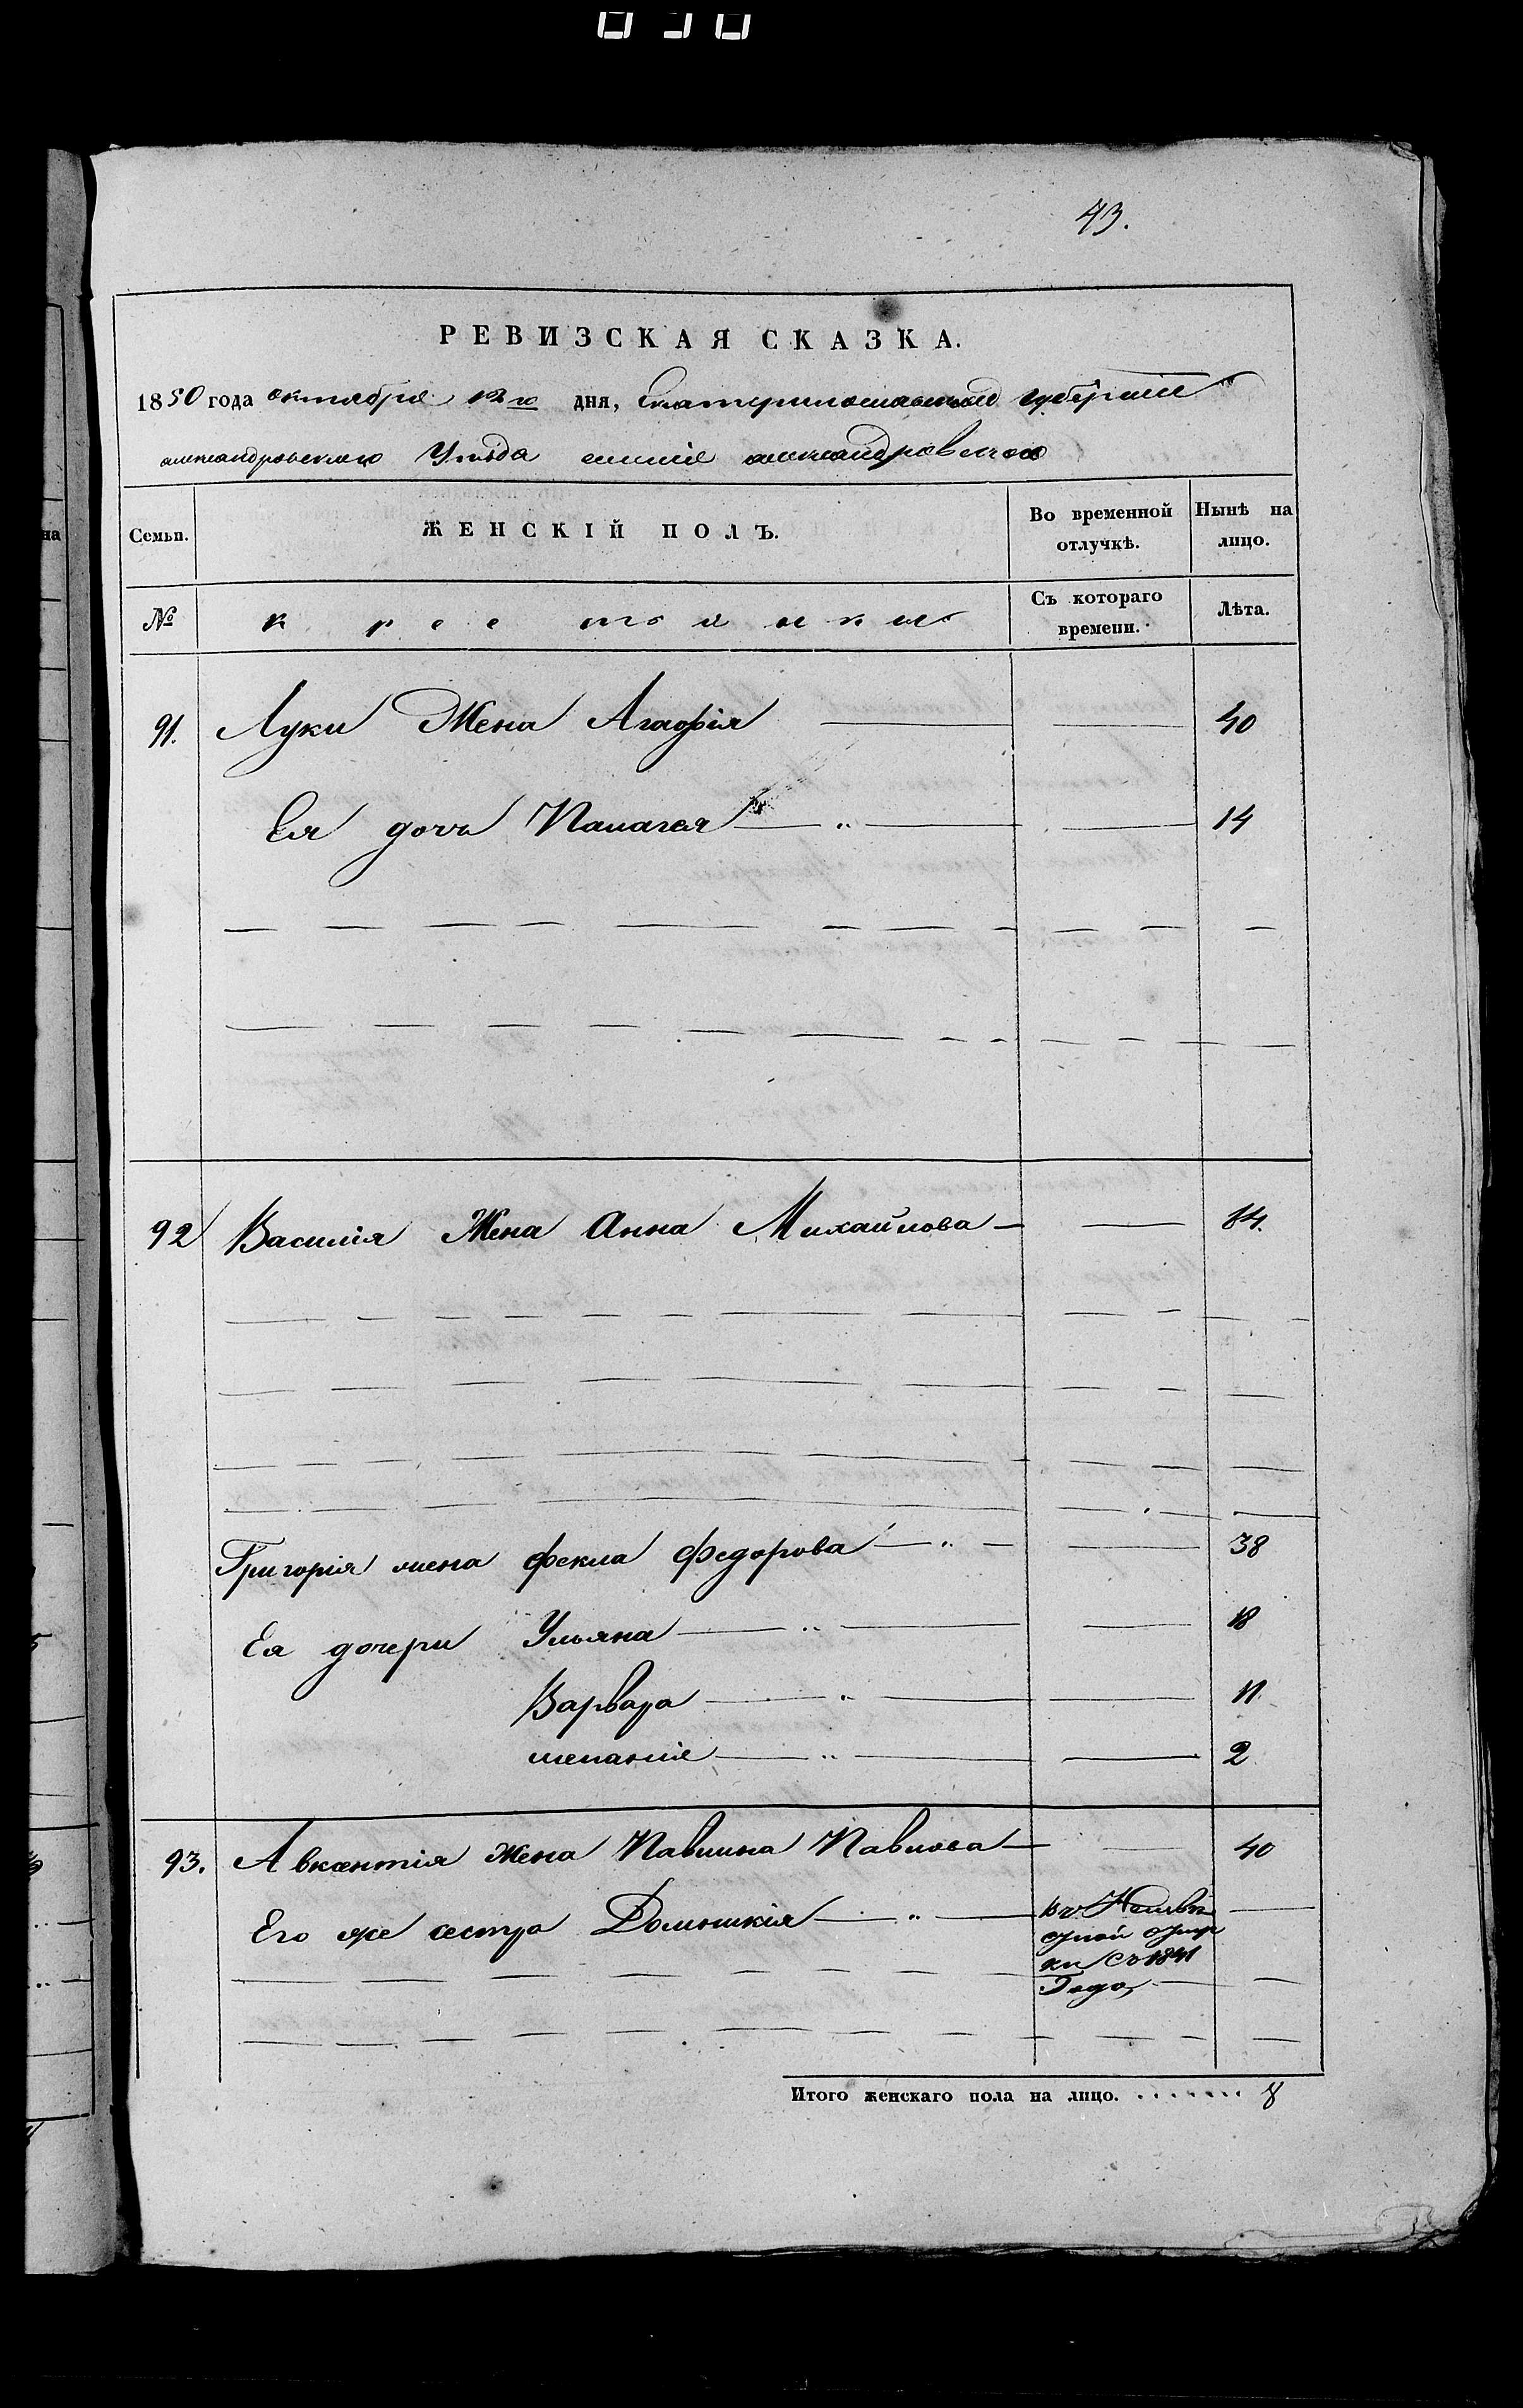 43.
РЕВИЗСКАЯ СКАЗКА.
1850 года октября 12го дня, Екатеринославской губерніи
александровского Уезда
Семьи.
ЖЕНСКІЙ ПОЛЪ.
Во временной
отлучкѣ.
Нынѣ на
лицо.
№
крестьянки
Съ котораго
времени.
Лѣта.
91. Луки Жена Агафія 40
Ея дочь Палагея 14
92 Василія Жена Анна Михайлова 84.
Григорія жена Фекла Федорова 38
Ея дочери Ульяна 18
Варвара 11
меланія 2
93. Авксентія жена Павлина Павлова 40
Его же сестра Домникія въ
съ 1841
Года
Итого женскаго пола на лицо. 8